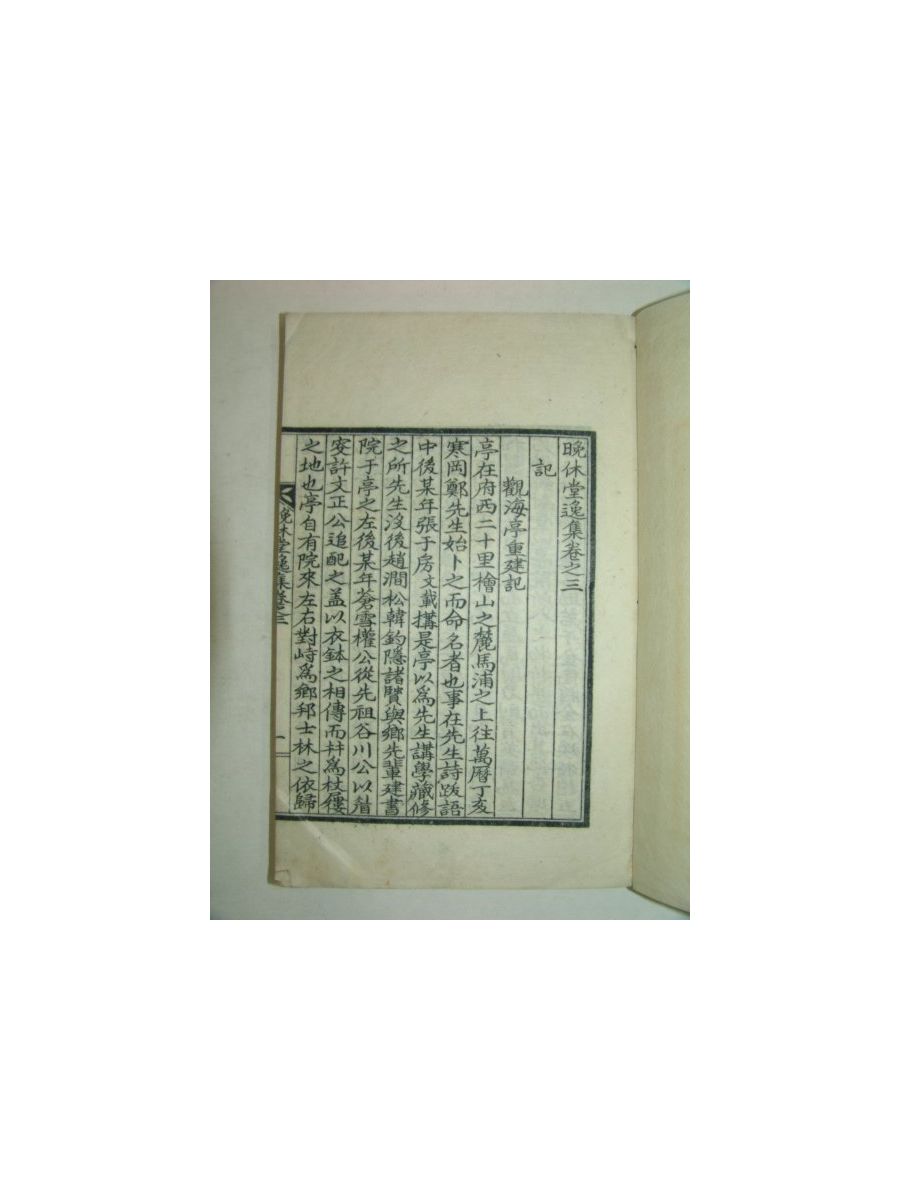 晩休堂逸集卷之三
記
觀海亭重建記
亭在府西二十里檜山之麓馬浦之上往萬曆丁亥
寒岡鄭先生始卜之而命名者也事在先生詩跋語
中後某年張于房文載搆是亭以爲先生講學藏修
之所先生沒後趙澗松韓釣隱諸賢與鄕先輩建書
院于亭之左後某年蒼雪權公從先祖谷川公以眉
叟許文正公追配之盖以衣鉢之相傳而幷爲杖屨
之地也亭自有院來左右對峙爲鄕邦士林之依歸
晩休堂逸集卷之三
一